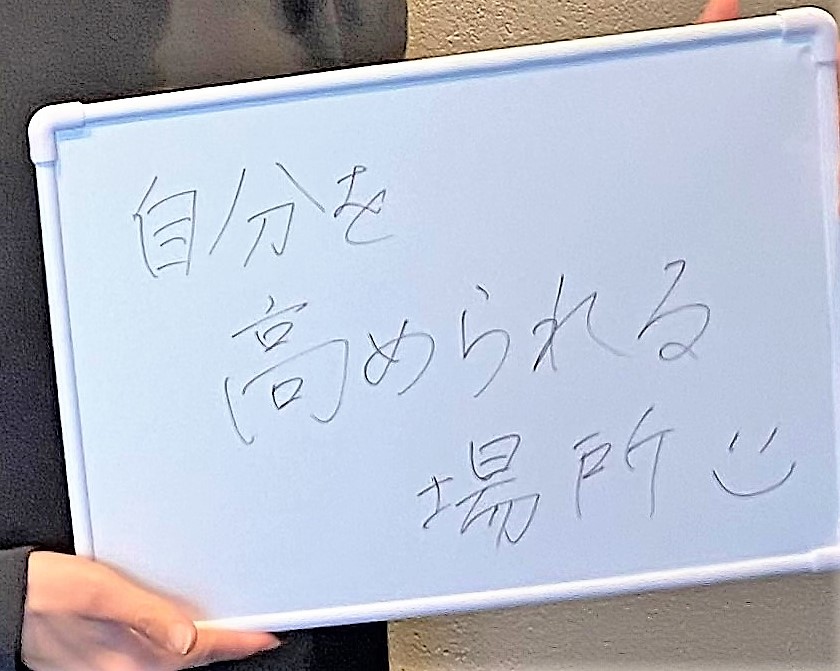 自分を
高められる
場所 :)